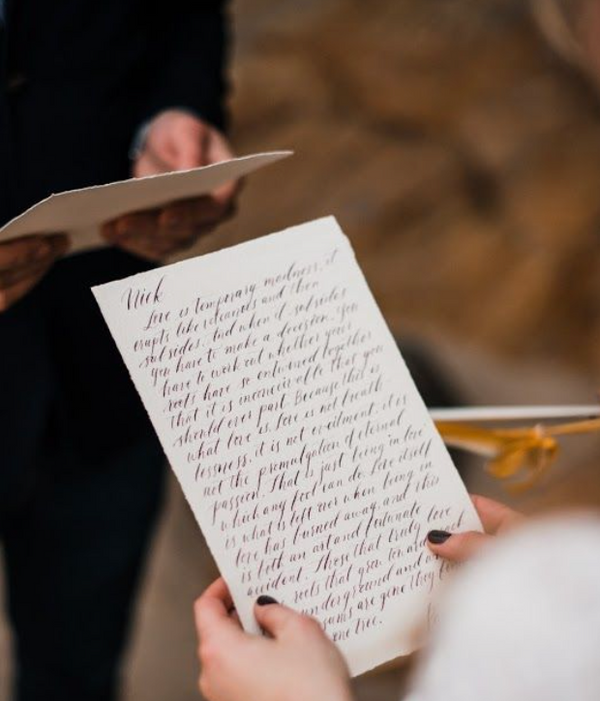 Nick
Love is temporary madness, it
erupts like volcanoes and then
subsides. And when it subsides
you have to make a decision. You
have to work out whether your
roots have so entwined together
that it is inconceivable that you
should ever part. Because this is
what love is. Love is not breath
lessness, it is not excitement, it is
not the promulgation of eternal
passion. That is just being in love
which any fool can do. Love itself
is what is left over when being in
love has burned away, and this
is both an art and fortunate
accident. Those that truly love
roots that grow toward each
underground and
are gone they
one tree.